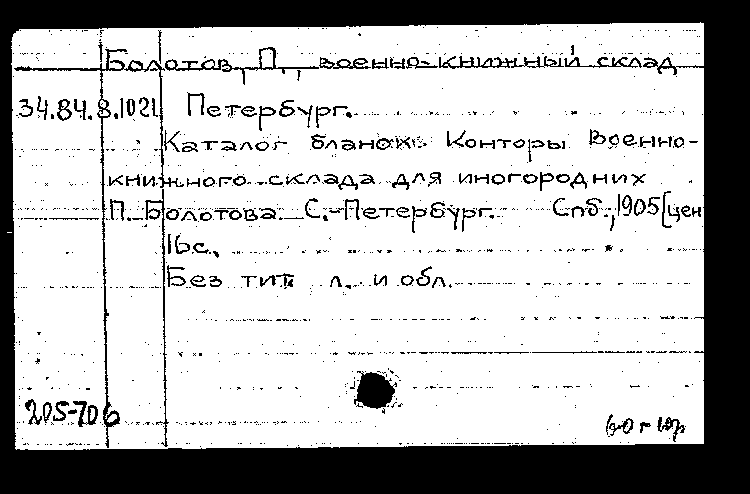 Болотов, П., военно-книжный склад
34.84.8.1021 Петербург.
Каталог бланок Конторы Военно-
книжного склада для иногородних
П. Болотова С.-Петербург. Спб., 1905 [цен
16 с.
Без тит. л. и обл.
205-706